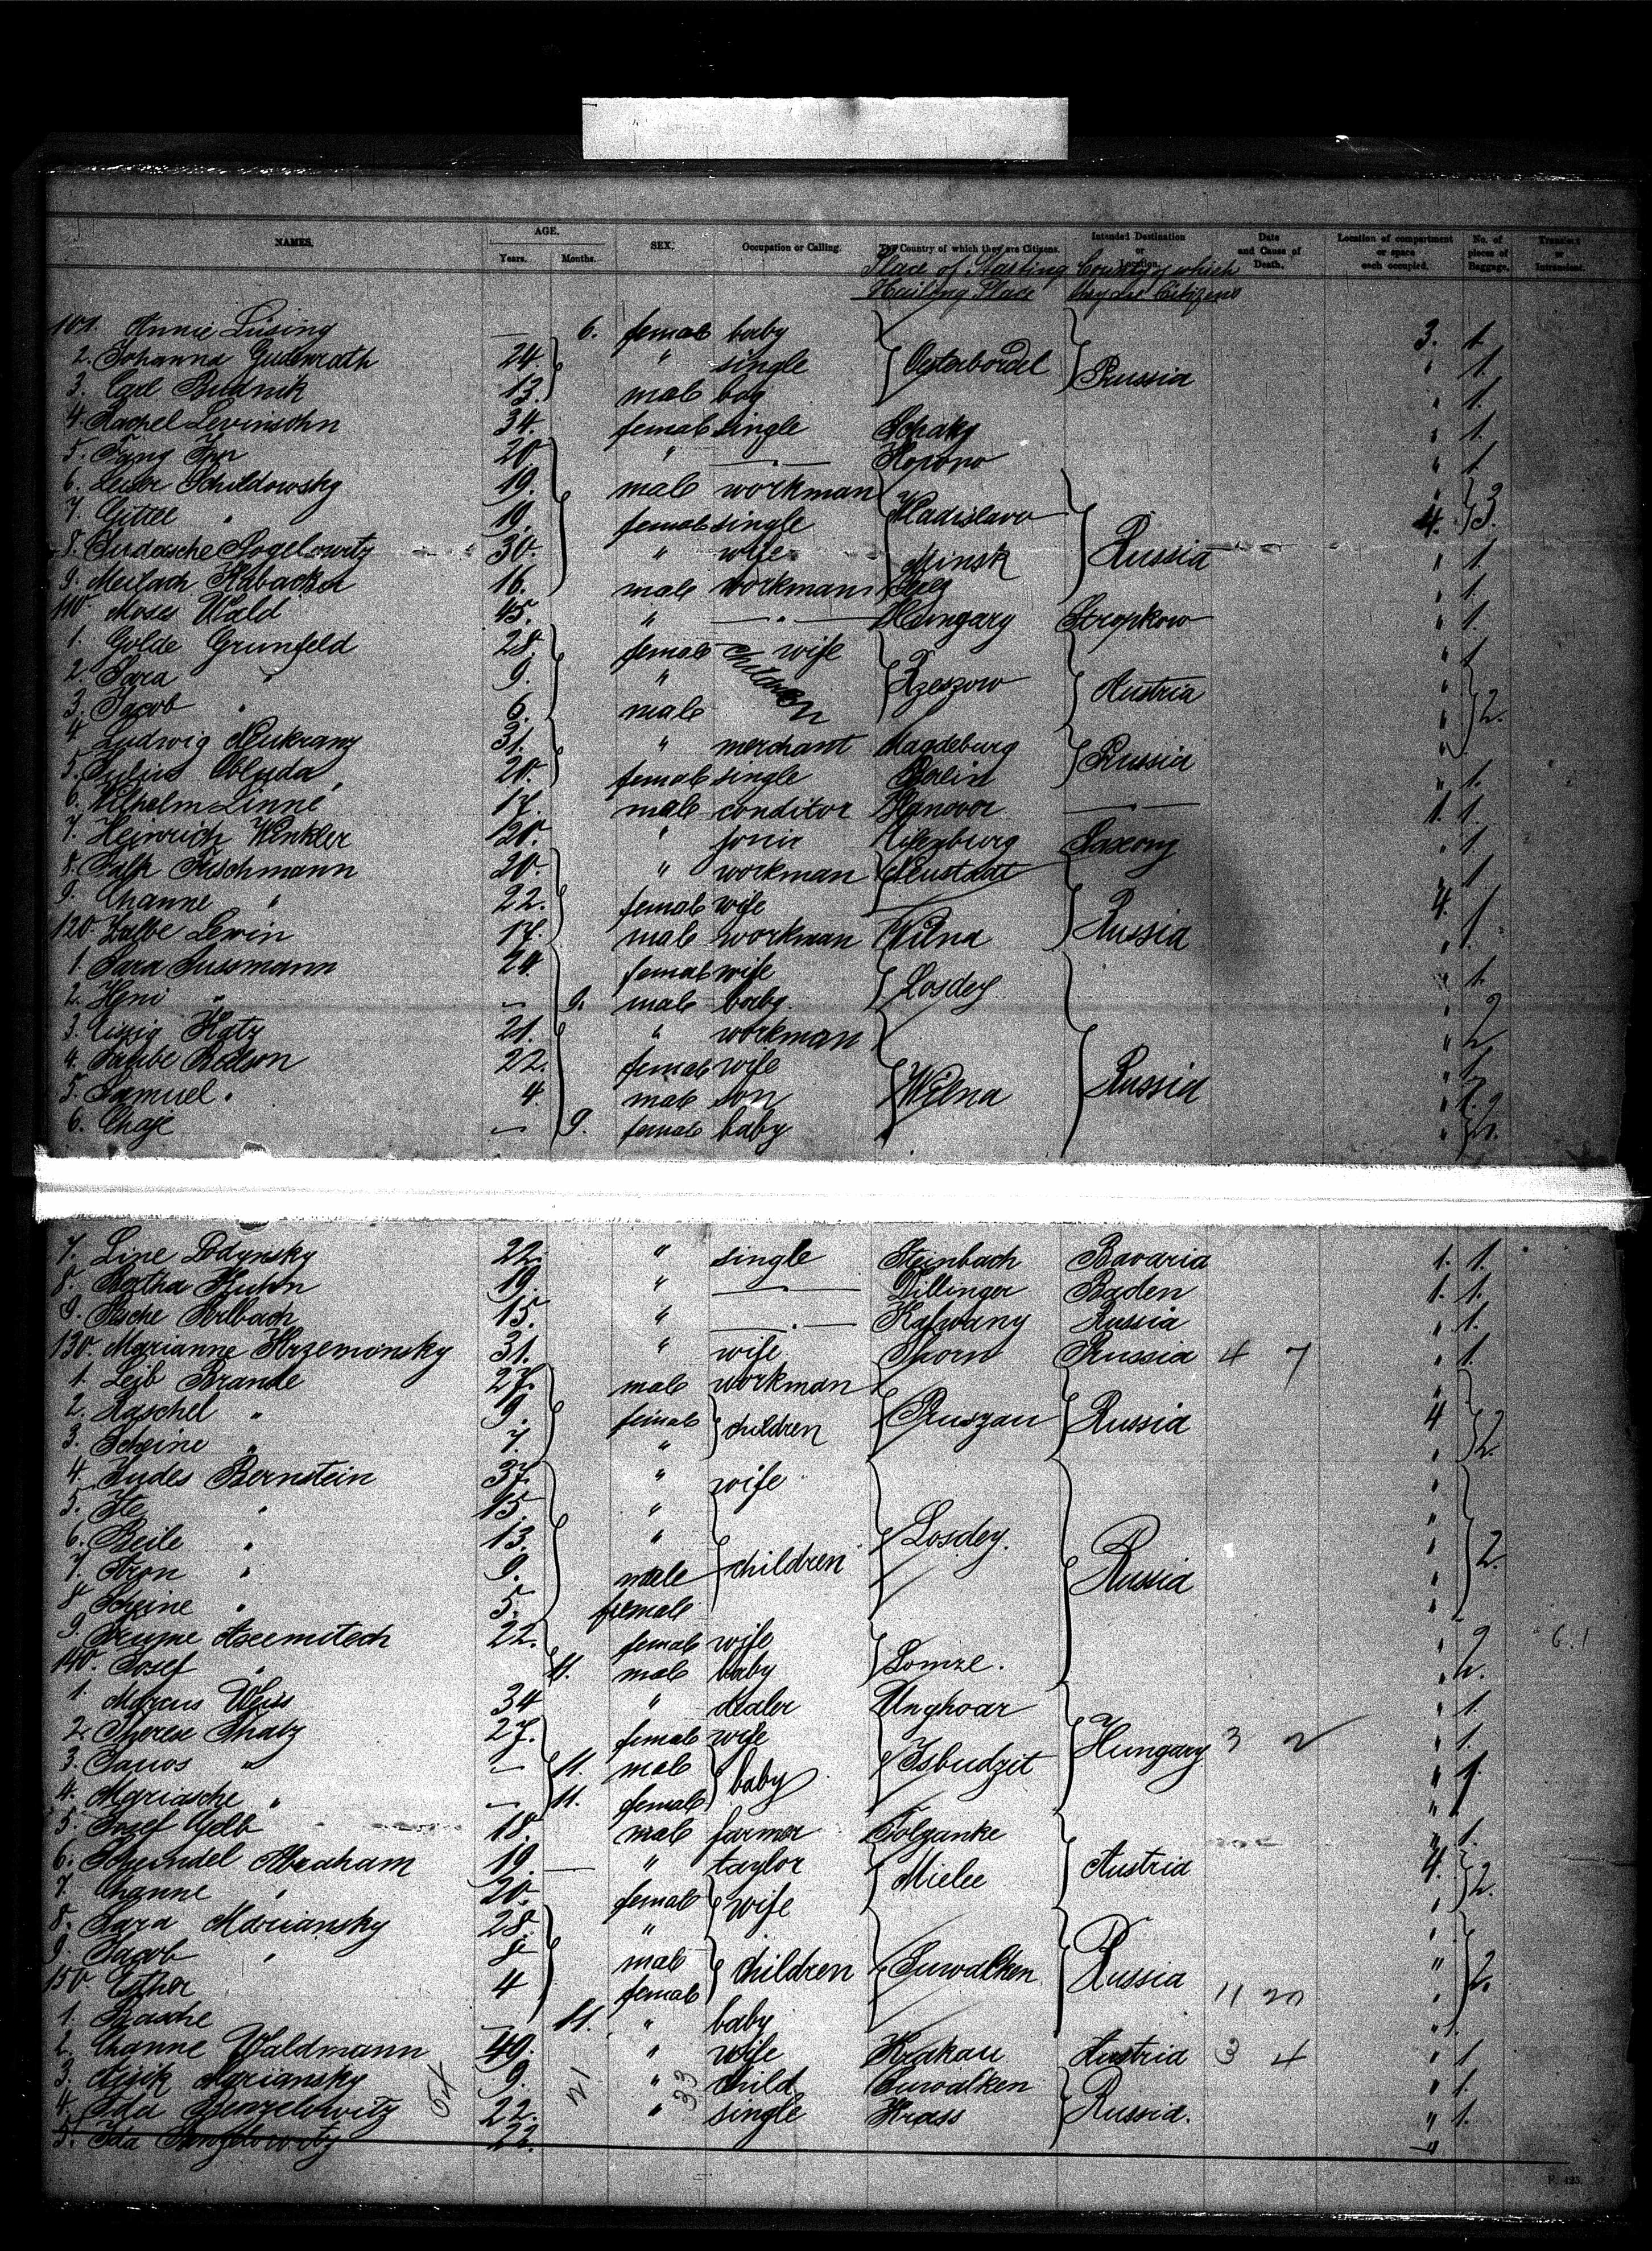 NAMES. AGE. SEX. Occupation or Calling. The Country of which they are Citizens. Intended Destination or Location. Date and Cause of Death. Location of compartment or space each occupied. No. of pieces of Baggage. Transient or Intransient.
Years. Months.
Place of Starting Country of which
Hailing Place they are Citizens
101. Annie Lüsing — 6. female baby 3. 1.
2. Johanna Gudenrath 24. " single Osterbordel Prussia " 1.
3. Carl Budnik 13. male boy " 1.
4. Rachel Levinsohn 34. female single Schaky " 1.
5. 20 " —"— Kowno " 1.
6. Leiser Schildowsky 19. male workman "
7. Gittel " 19. female single Wladislawo Russia 4. 3.
8. 30. " wife Minsk " 1.
9. Meilach 16. male workman " 1.
110. Moses Wald 45. " —"— Hungary Stropkow " 1.
1. Golde Grunfeld 28. female wife " 1
2. Sara " 9. " children Rzeszow Austria "
3. Jacob " 6. male " 2.
4 Ludwig Neukranz 31. " merchant Magdeburg Prussia "
5. Obluda 20. female single Berlin " 1.
6. Wilhelm Linné 17. male conditor Hanover —"— 1. 1.
7. Heinrich Winkler 20. " Eilenburg Saxony " 1.
8. Fischmann 20. " workman Neustadt " 1
9. Channe " 22. female wife Russia 4.
120. Lewin 17. male workman Wilna " 1.
1. Sara Sussmann 24. female wife Losdey " 1.
2. " — 9. male baby
3. Katz 21. " workman " 2
4. Taube 22. female wife Wilna Russia " 1.
5. Samuel " 4. male son "
6. Chaje — 9. female baby " 2.
7. Line Podynsky 22. " single Steinbach Bavaria 1. 1.
8. Bertha Kuhn 19. " —"— Dillinger Baden 1. 1.
9. 15. " —"— Kalwany Russia " 1.
130. Marianne Krzeminsky 31. " wife Thorn Prussia 4 7 " 1.
1. Leib Brande 27. male workman "
2. Raschel " 9. female children Pruszau Russia 4
3. Scheine " 7. " " 2.
4. Judes Bernstein 37. " wife "
5. Ite " 15. " "
6. Beile " 13. " children Losdey. Russia "
7. Aron " 9. male " 2.
8 Scheine " 5. female "
9. 22. female wife " 2 6.1
140. Josef " 11. male baby Lomze. "
1. Marcus Weiss 34 " dealer Unghvar " 1.
2. Therese Shatz 27. female wife Hungary 3 2 " 1.
3. " — 11. male baby " 1.
4. Mariasche " — 11. female "
5. Josef Gelb 18. male farmer " 1.
6. Scheindel Abraham 19. — " taylor Mielec Austria 4.
7. Channe " 20. female wife " 2.
8. Sara Mariansky 28. " "
9. Jacob " 8 male children Suwalken Russia "
150. Esther 4 female 11 20 " 2.
1. Basche — 11. " baby "
2. Channe Waldmann 49. " wife Krakau Austria 3 4 " 1
3. Aisik Mariansky 9. " child Suwalken Russia. " 1.
4. Ida 22. " single Krass " 1.
5. Ida 22. "
F. 425.